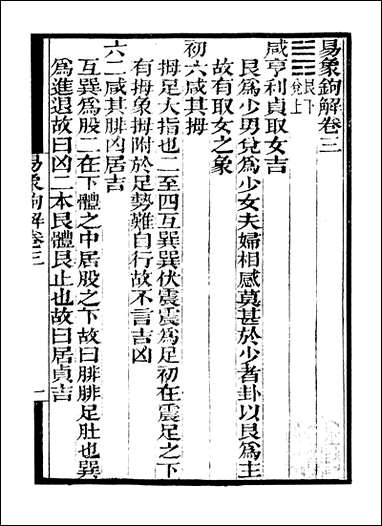 易象鉤解卷三
艮下
兌上
咸亨利貞取女吉
艮爲少男兌爲少女夫婦相感莫甚於少者卦以艮爲主
故有取女之象
初六咸其拇
拇足大指也二至四互巽巽伏震震爲足初在震足之下
有拇象拇附於足勢難自行故不言吉凶
六二咸其腓凶居吉
互巽爲股二在下體之中居股之下故曰腓腓足肚也巽
爲進退故曰凶二本艮體艮止也故曰居貞吉
易象鉤解卷三
一